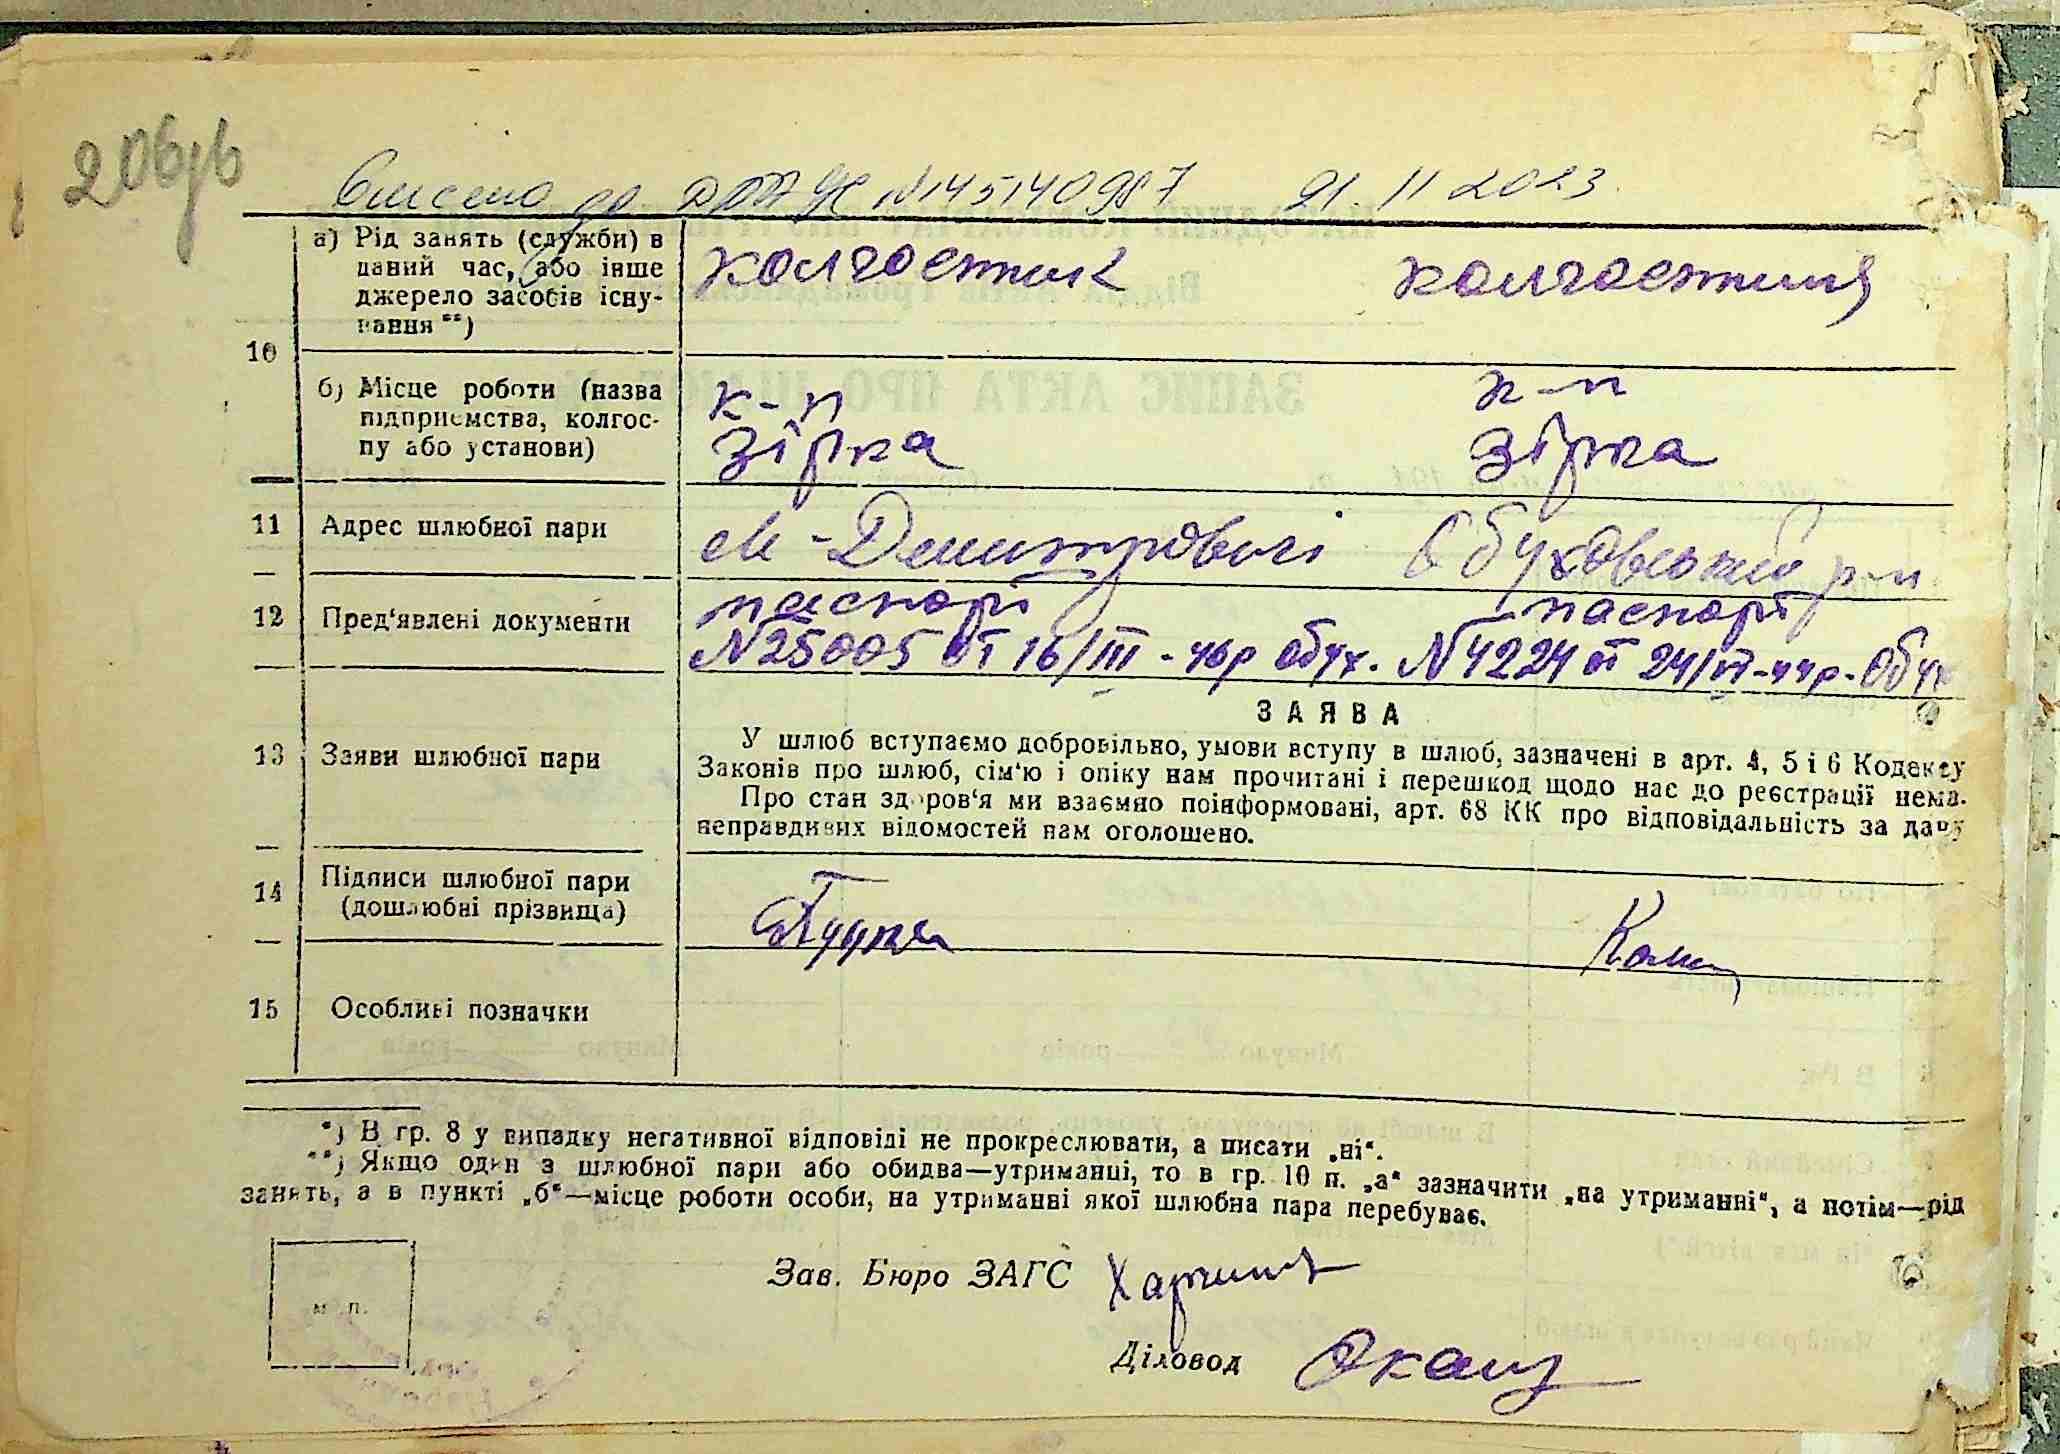 206зв
Внесено до ДРАЦС №145140987 21.11 2023
10
а) Рід занять (служби) в даний час, або інше джерело засобів існування **)
колгоспник колгоспниця
б) Місце роботи (назва підприємства, колгоспу або установи)
к-п к-п
Зірка Зірка
11 Адрес шлюбної пари
м-Демитровичі Обуховський р-н
12 Пред'явлені документи
паспорт паспорт
№25005 от 16/III-46р Обух. №4224 от 24/VI-44р-Обух
13 Заяви шлюбної пари
ЗАЯВА
У шлюб вступаємо добровільно, умови вступу в шлюб, зазначені в арт. 4, 5 і 6 Кодексу
Законів про шлюб, сім'ю і опіку нам прочитані і перешкод щодо нас до реєстрації нема.
Про стан здоров'я ми взаємно поінформовані, арт. 68 КК про відповідальність за дачу
неправдивих відомостей нам оголошено.
14 Підписи шлюбної пари
(дошлюбні прізвища)
15 Особливі позначки
*) В гр. 8 у випадку негативної відповіді не прокреслювати, а писати „ні“.
**) Якщо один з шлюбної пари або обидва—утриманці, то в гр. 10 п. „а“ зазначити „на утриманні“, а потім—рід
занять, а в пункті „б“—місце роботи особи, на утриманні якої шлюбна пара перебуває.
м. п.
Зав. Бюро ЗАГС
Діловод